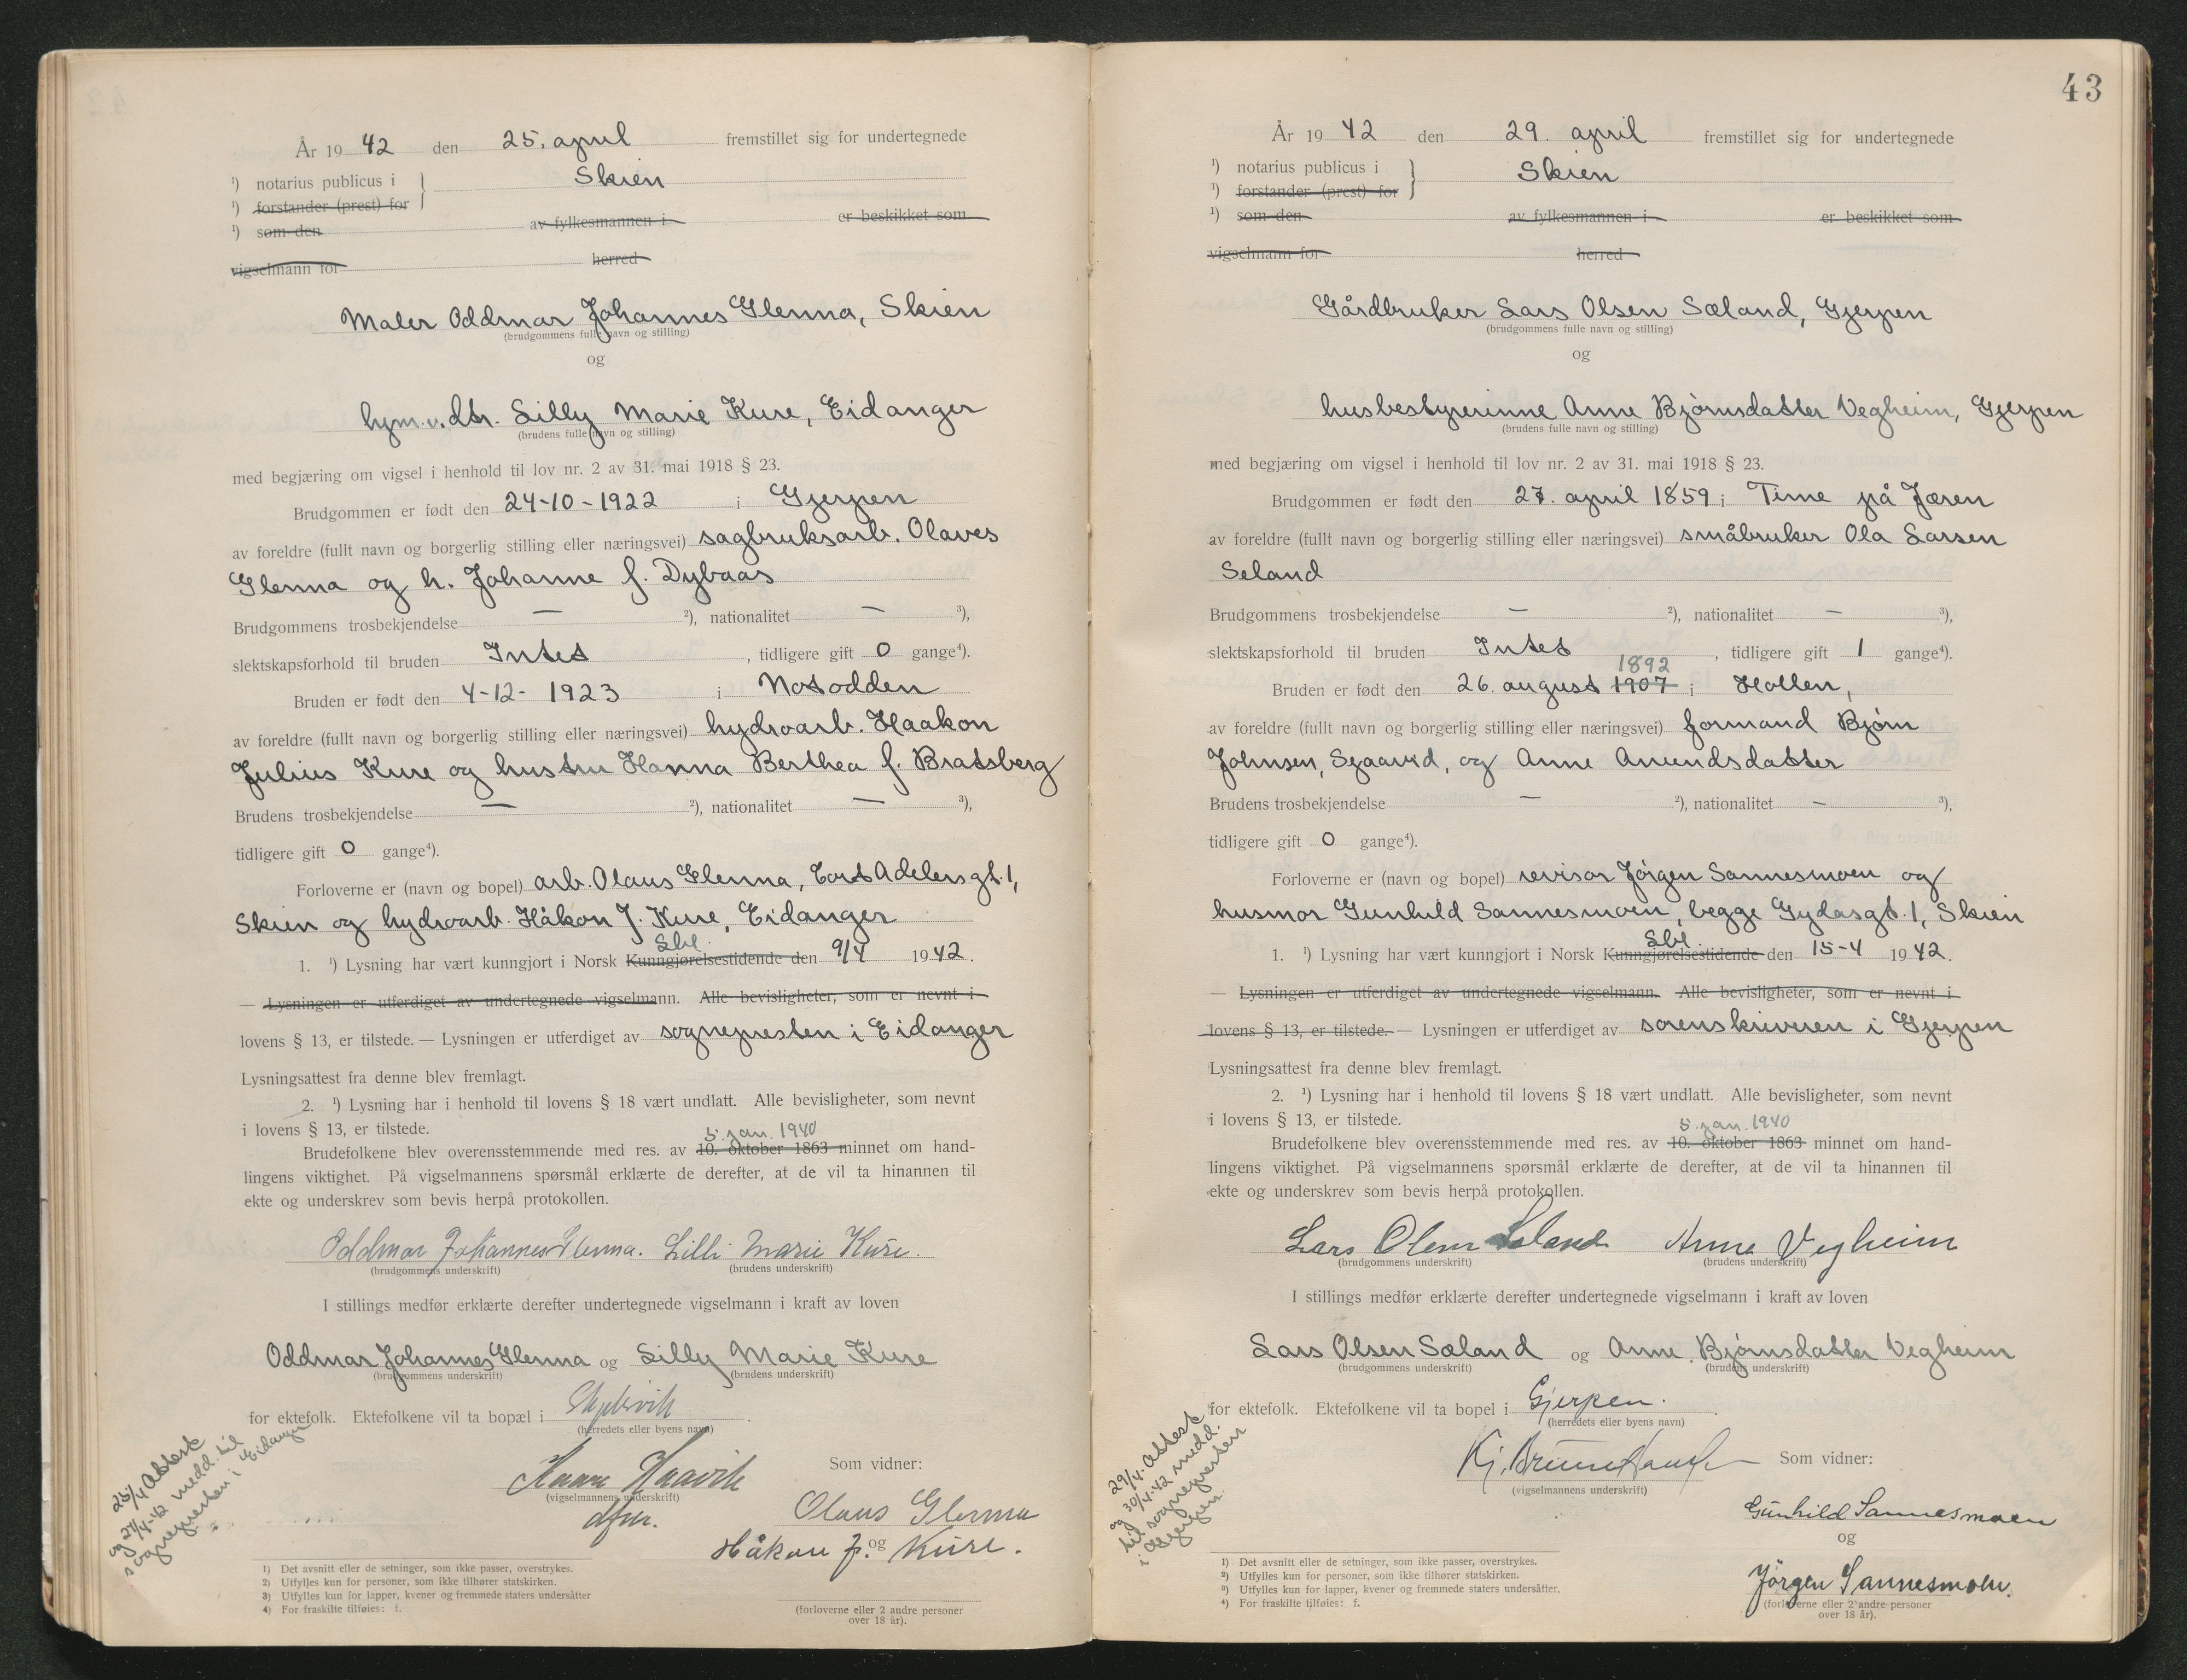 År 19 42 den 25. april fremstillet sig for undertegnede
¹) notarius publicus i } Skien
¹) forstander (prest) for
¹) som den av fylkesmannen i er beskikket som
vigselmann for herred
Maler Oddmar Johannes Glenna, Skien
(brudgommens fulle navn og stilling)
og
hjm.v. dtr. Lilly Marie Kure, Eidanger
(brudens fulle navn og stilling)
med begjæring om vigsel i henhold til lov nr. 2 av 31. mai 1918 § 23.
Brudgommen er født den 24-10-1922 i Gjerpen
av foreldre (fullt navn og borgerlig stilling eller næringsvei) sagbruksarb. Olaves
Glenna og h. Johanne f. Dybaas
Brudgommens trosbekjendelse — ²), nationalitet — ³),
slektskapsforhold til bruden Intet, tidligere gift 0 gange⁴).
Bruden er født den 4-12-1923 i Notodden
av foreldre (fullt navn og borgerlig stilling eller næringsvei) hydroarb. Haakon
Julius Kure og hustru Hanna Berthea f. Bratsberg
Brudens trosbekjendelse — ²), nationalitet — ³),
tidligere gift 0 gange⁴).
Forloverne er (navn og bopel) arb. Olaus Glenna, Cort Adelersgt. 1,
Skien og hydroarb. Håkon J. Kure, Eidanger
Lbl.
1. ¹) Lysning har vært kunngjort i Norsk Kunngjørelsestidende den 9/4 1942.
— Lysningen er utferdiget av undertegnede vigselmann. Alle bevisligheter, som er nevnt i
lovens § 13, er tilstede. — Lysningen er utferdiget av sognepresten i Eidanger
Lysningsattest fra denne blev fremlagt.
2. ¹) Lysning har i henhold til lovens § 18 vært undlatt. Alle bevisligheter, som nevnt
i lovens § 13, er tilstede.
5. jan. 1940
Brudefolkene blev overensstemmende med res. av 10. oktober 1863 minnet om hand-
lingens viktighet. På vigselmannens spørsmål erklærte de derefter, at de vil ta hinannen til
ekte og underskrev som bevis herpå protokollen.
Oddmar Johannes Glenna. Lilli Marie Kure.
(brudgommens underskrift) (brudens underskrift)
I stillings medfør erklærte derefter undertegnede vigselmann i kraft av loven
Oddmar Johannes Glenna og Lilly Marie Kure
(brudgommens underskrift) (brudens underskrift)
for ektefolk. Ektefolkene vil ta bopæl i
(herredets eller byens navn)
Haavik Som vidner:
(vigselmannens underskrift)
dfm.
Olaus Glenna
og
Håkon J. Kure.
25/4 Attest
og 27/4-42 medd. til
sognepresten i Eidanger
1) Det avsnitt eller de setninger, som ikke passer, overstrykes.
2) Utfylles kun for personer, som ikke tilhører statskirken.
3) Utfylles kun for lapper, kvener og fremmede staters undersåtter
4) For fraskilte tilføies: f.
(forloverne eller 2 andre personer
over 18 år).
43
År 19 42 den 29. april fremstillet sig for undertegnede
¹) notarius publicus i } Skien
¹) forstander (prest) for
¹) som den av fylkesmannen i er beskikket som
vigselmann for herred
Gårdbruker Lars Olsen Sæland, Gjerpen
(brudgommens fulle navn og stilling)
og
husbestyrerinne Anne Bjørnsdatter Vegheim, Gjerpen
(brudens fulle navn og stilling)
med begjæring om vigsel i henhold til lov nr. 2 av 31. mai 1918 § 23.
Brudgommen er født den 27. april 1859 i Time på Jæren
av foreldre (fullt navn og borgerlig stilling eller næringsvei) småbruker Ola Larsen
Seland
Brudgommens trosbekjendelse — ²), nationalitet — ³),
slektskapsforhold til bruden Intet, tidligere gift 1 gange⁴).
1892
Bruden er født den 26. august 1907 i Hollen,
av foreldre (fullt navn og borgerlig stilling eller næringsvei) formand Bjørn
Johnsen, og Anne Amundsdatter
Brudens trosbekjendelse — ²), nationalitet — ³),
tidligere gift 0 gange⁴).
Forloverne er (navn og bopel) revisor Jørgen Sannesmoen og
husmor Gunhild Sannesmoen, begge Gydasgt. 1, Skien
Lbl.
1. ¹) Lysning har vært kunngjort i Norsk Kunngjørelsestidende den 15-4 1942.
— Lysningen er utferdiget av undertegnede vigselmann. Alle bevisligheter, som er nevnt i
lovens § 13, er tilstede. — Lysningen er utferdiget av sorenskriveren i Gjerpen
Lysningsattest fra denne blev fremlagt.
2. ¹) Lysning har i henhold til lovens § 18 vært undlatt. Alle bevisligheter, som nevnt
i lovens § 13, er tilstede.
5. jan. 1940
Brudefolkene blev overensstemmende med res. av 10. oktober 1863 minnet om hand-
lingens viktighet. På vigselmannens spørsmål erklærte de derefter, at de vil ta hinannen til
ekte og underskrev som bevis herpå protokollen.
Lars Olsen Sæland Anne Vegheim
(brudgommens underskrift) (brudens underskrift)
I stillings medfør erklærte derefter undertegnede vigselmann i kraft av loven
Lars Olsen Sæland og Anne Bjørnsdatter Vegheim
(brudgommens underskrift) (brudens underskrift)
for ektefolk. Ektefolkene vil ta bopel i Gjerpen.
(herredets eller byens navn)
Kj. Bruun Hansen Som vidner:
(vigselmannens underskrift)
Gunhild Sannesmoen
og
Jørgen Sannesmoen.
(forloverne eller 2 andre personer
over 18 år).
29/4. Attest
og 30/4-42 medd.
til sognepresten
i Gjerpen
1) Det avsnitt eller de setninger, som ikke passer, overstrykes.
2) Utfylles kun for personer, som ikke tilhører statskirken.
3) Utfylles kun for lapper, kvener og fremmede staters undersåtter.
4) For fraskilte tilføies: f.